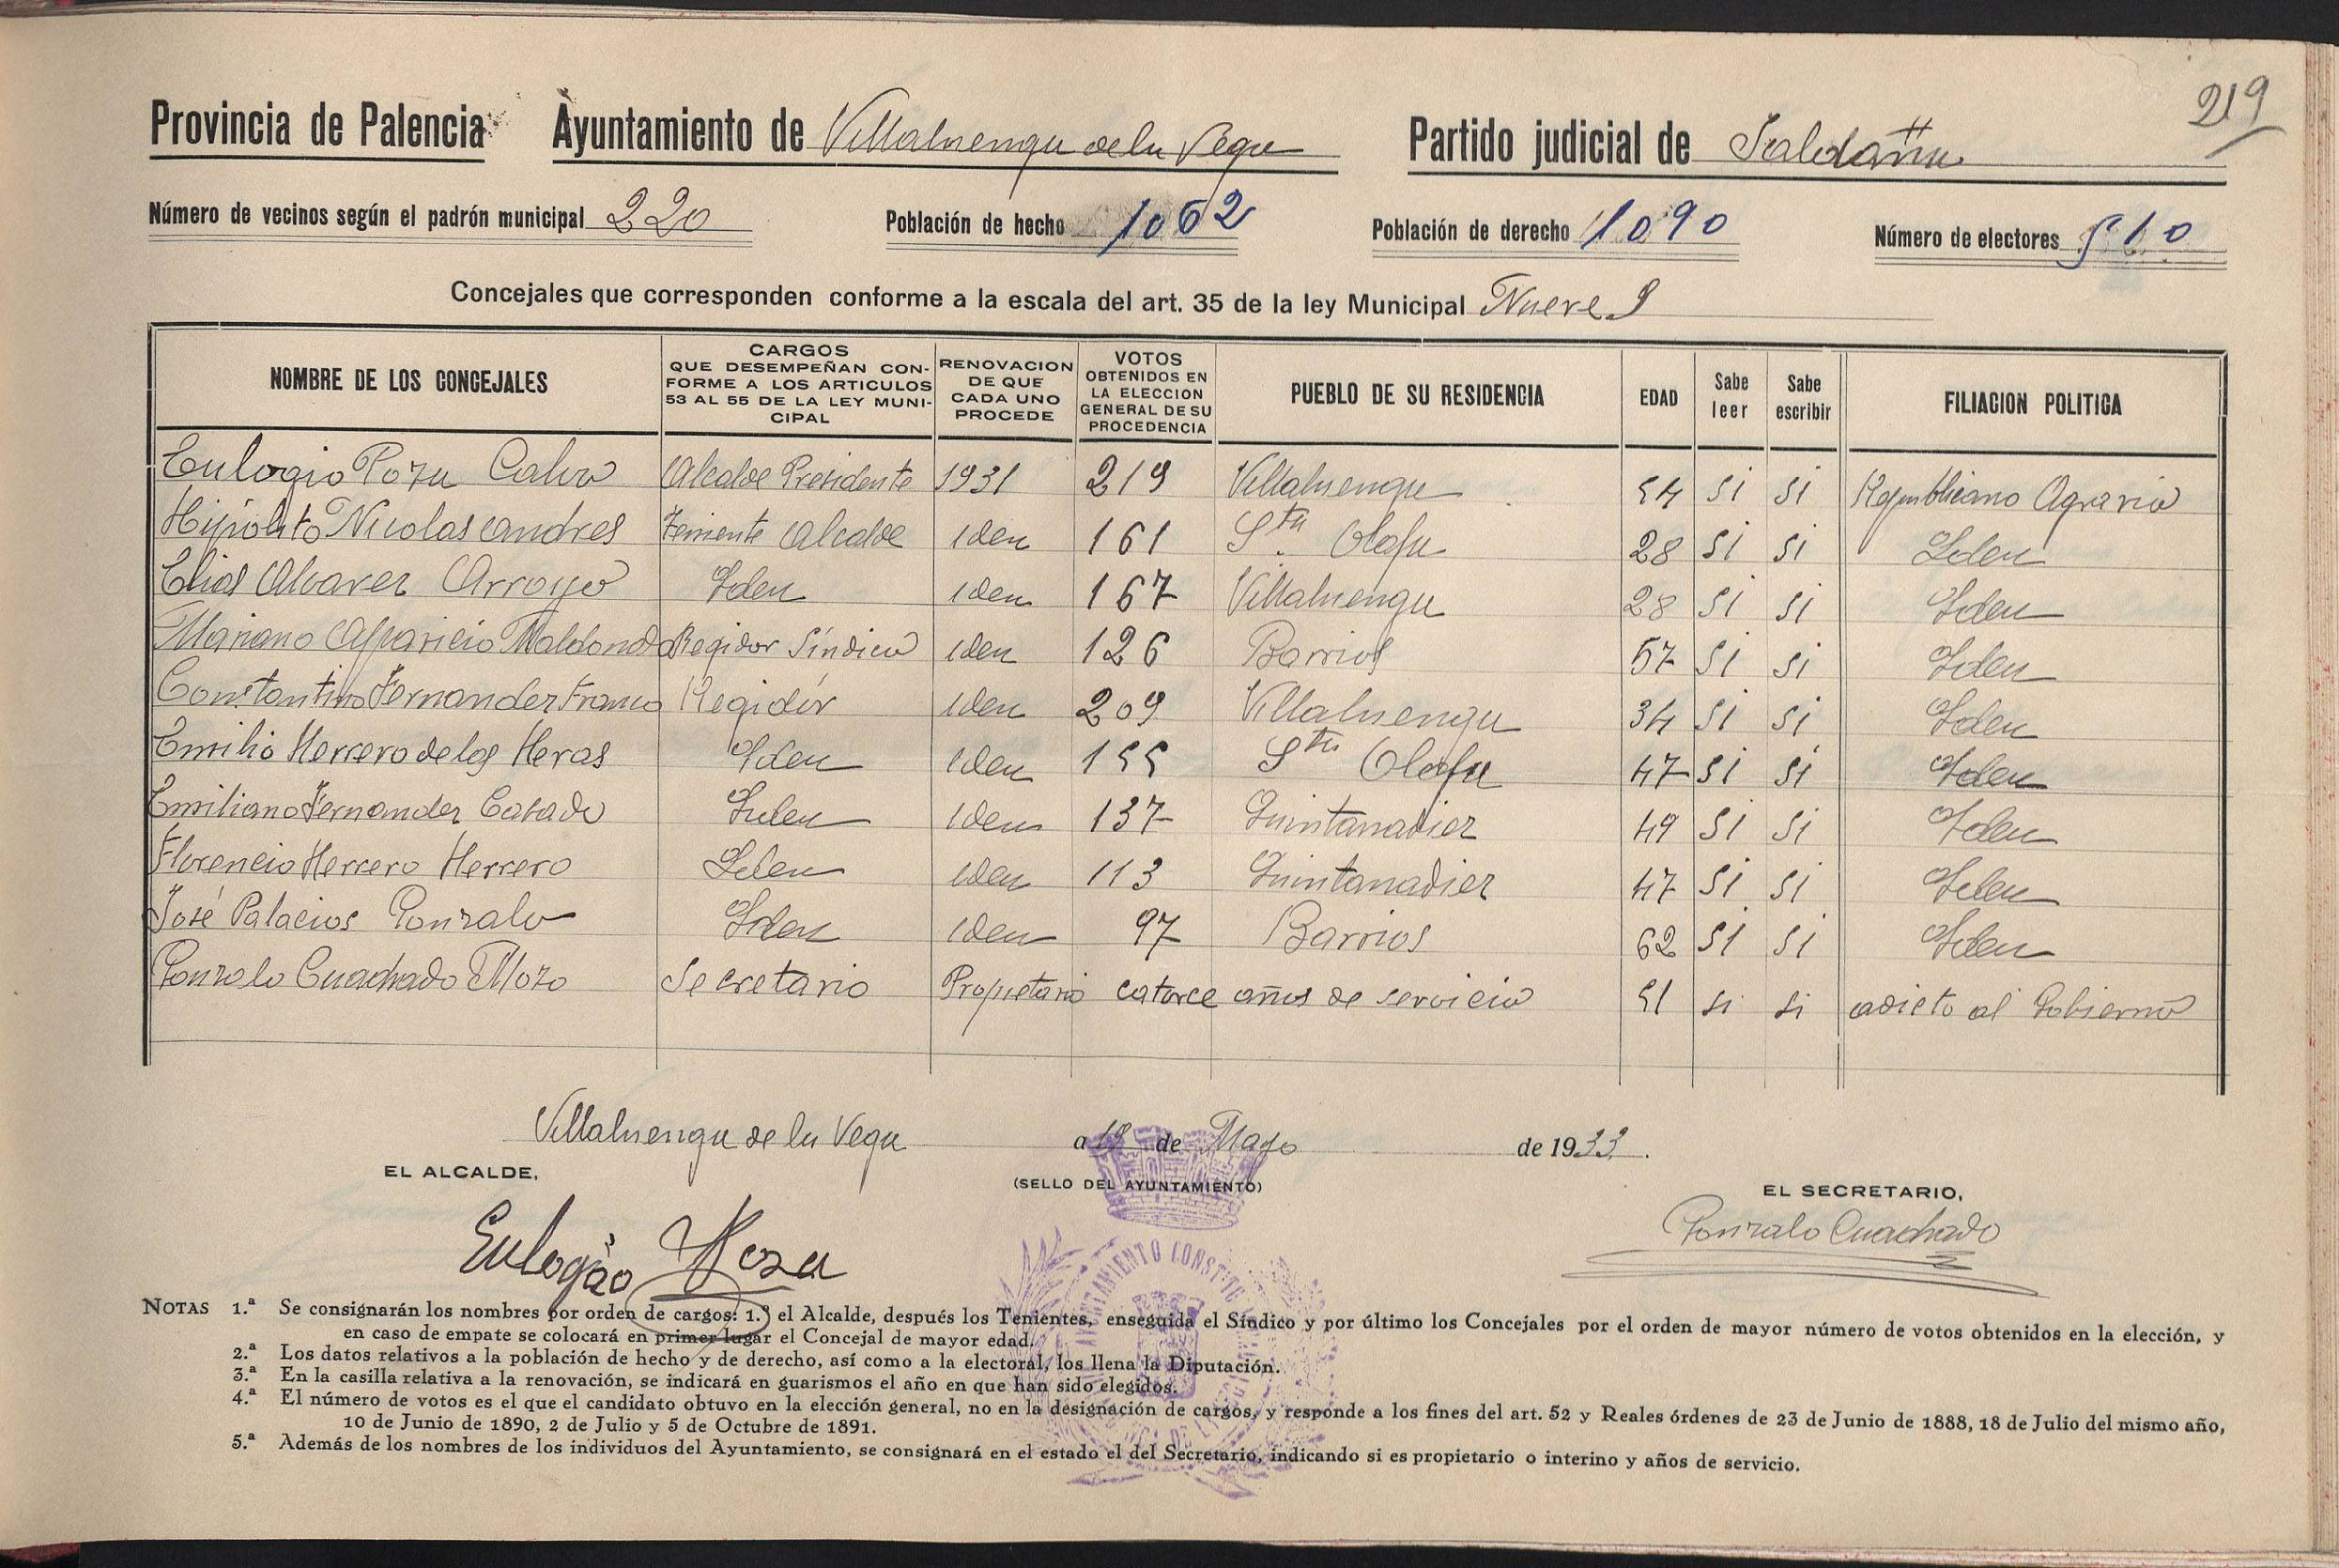 219
Provincia de Palencia Ayuntamiento de Villaluenga de la Vega Partido judicial de Saldaña
Número de vecinos según el padrón municipal 220 Población de hecho 1062 Población de derecho 1090 Número de electores 510
Concejales que corresponden conforme a la escala del art. 35 de la ley Municipal Nueve 9
NOMBRE DE LOS CONCEJALES CARGOS QUE DESEMPEÑAN CONFORME A LOS ARTICULOS 53 AL 55 DE LA LEY MUNICIPAL RENOVACION DE QUE CADA UNO PROCEDE VOTOS OBTENIDOS EN LA ELECCION GENERAL DE SU PROCEDENCIA PUEBLO DE SU RESIDENCIA EDAD Sabe leer Sabe escribir FILIACION POLITICA
Eulogio Poza Calvo Alcalde Presidente 1931 219 Villaluenga 54 si si Republicano Agrario
Hipolito Nicolas Andres Teniente Alcalde iden 161 Sta Olaja 28 si si Iden
Elias Alvarez Arroyo Iden iden 167 Villaluenga 28 si si Iden
Mariano Aparicio Maldonado Regidor Síndico iden 126 Barrios 57 si si Iden
Constantino Fernandez Franco Regidór iden 209 Villaluenga 34 si si Iden
Emilio Herrero de los Heras Iden iden 155 Sta Olaja 47 si si Iden
Emiliano Fernandez Casado Iden iden 137 Quintanadiez 49 si si Iden
Florencio Herrero Herrero Iden iden 113 Quintanadiez 47 si si Iden
José Palacios Gonzalo Iden iden 97 Barrios 62 si si Iden
Gonzalo Cuadrado Mozo Secretario Propietario catorce años de servicio 51 si si adicto al Gobierno
Villaluenga de la Vega a 19 de Mayo de 1933.
EL ALCALDE, (SELLO DEL AYUNTAMIENTO) EL SECRETARIO,
Eulogio Poza Gonzalo Cuadrado
NOTAS 1.ª Se consignarán los nombres por orden de cargos: 1.º el Alcalde, después los Tenientes, enseguida el Síndico y por último los Concejales por el orden de mayor número de votos obtenidos en la elección, y
en caso de empate se colocará en primer lugar el Concejal de mayor edad.
2.ª Los datos relativos a la población de hecho y de derecho, así como a la electoral, los llena la Diputación.
3.ª En la casilla relativa a la renovación, se indicará en guarismos el año en que han sido elegidos.
4.ª El número de votos es el que el candidato obtuvo en la elección general, no en la designación de cargos, y responde a los fines del art. 52 y Reales órdenes de 23 de Junio de 1888, 18 de Julio del mismo año,
10 de Junio de 1890, 2 de Julio y 5 de Octubre de 1891.
5.ª Además de los nombres de los individuos del Ayuntamiento, se consignará en el estado el del Secretario, indicando si es propietario o interino y años de servicio.